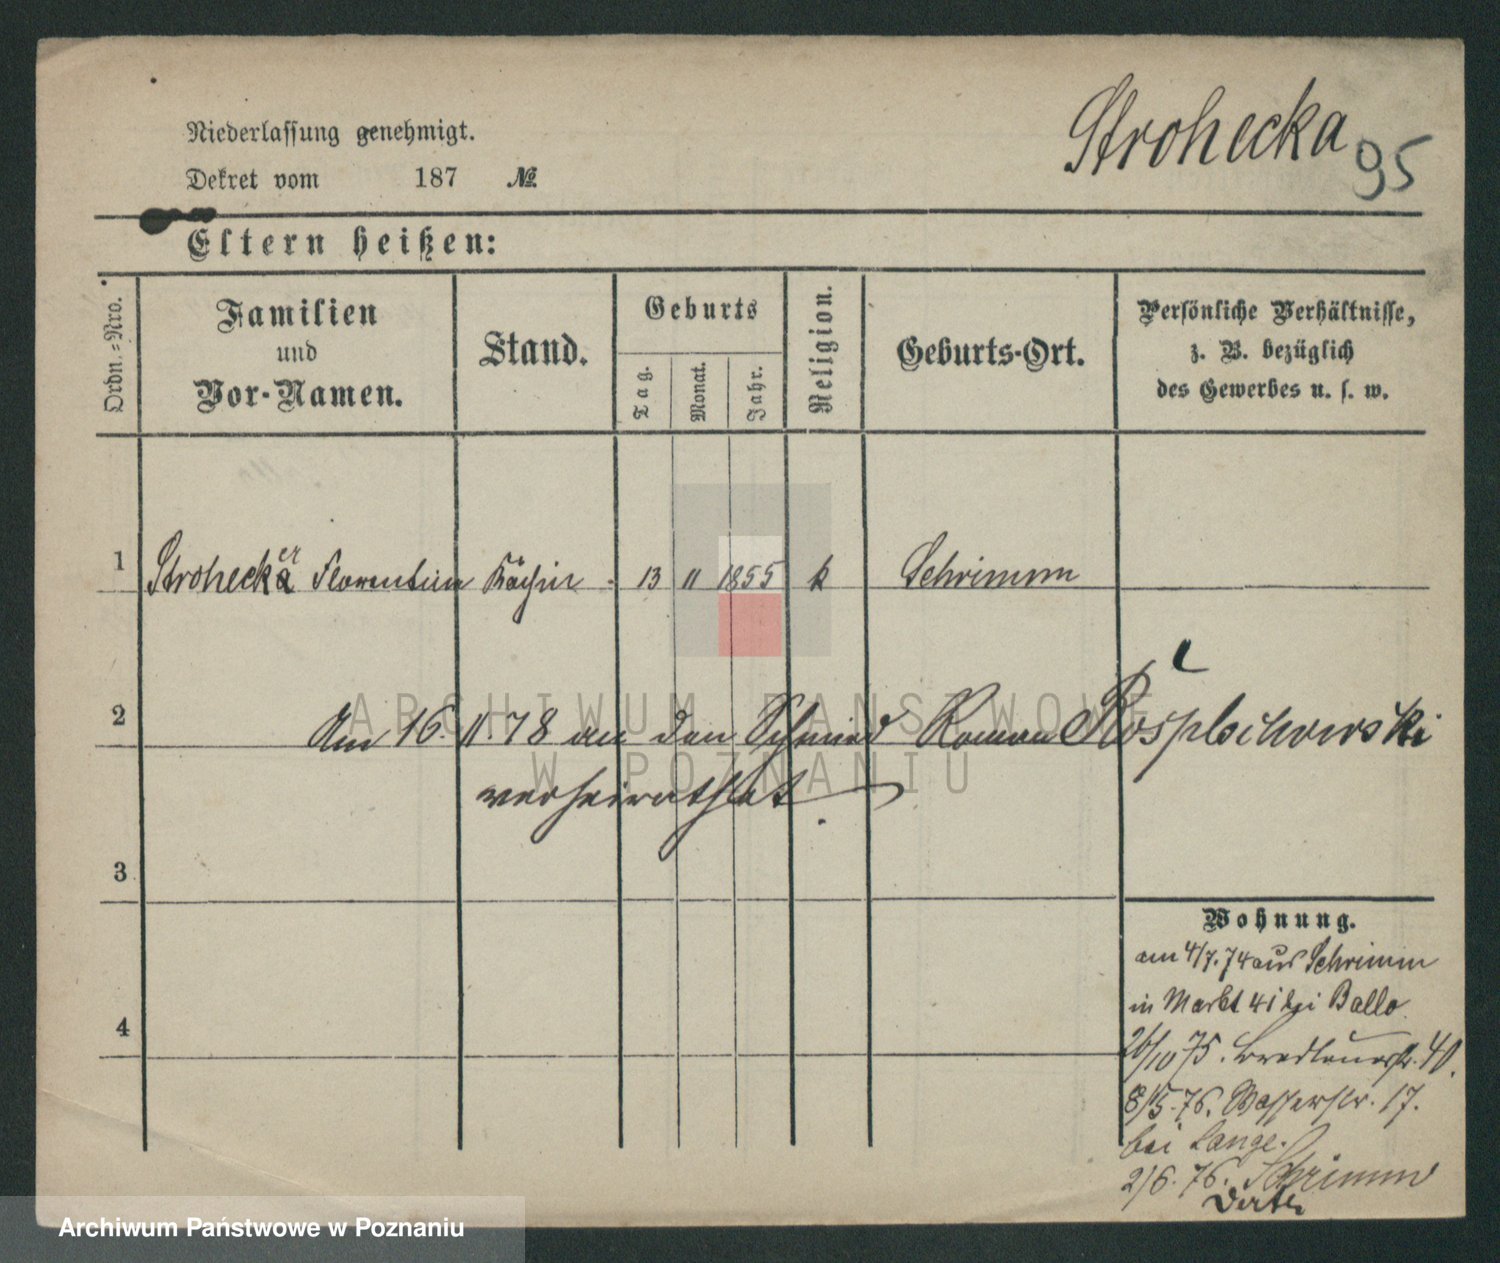 Strohecka
95
Niederlassung genehmigt.
Dekret vom 187 №
Eltern heißen:
Ordn.-Nro.
Familien
und
Vor-Namen.
Stand.
Geburts
Tag.
Monat.
Jahr.
Religion.
Geburts-Ort.
Persönliche Verhältnisse,
z. B. bezüglich
des Gewerbes u. s. w.
1 Strohecka er Florentine Köchin 13 11 1855 k Schrimm
2 Am 16. 11. 78 an den Schmied Roman
verheirathet
3
4
Wohnung.
am 4/7. 74 aus Schrimm
in Markt 41 bei Ballo
26/10 75. Breslauerstr. 40.
8/5. 76. Wasserstr. 17.
bei Lange.
2/6. 76. Schrimm
ARCHIWUM PAŃSTWOWE
W POZNANIU
Archiwum Państwowe w Poznaniu